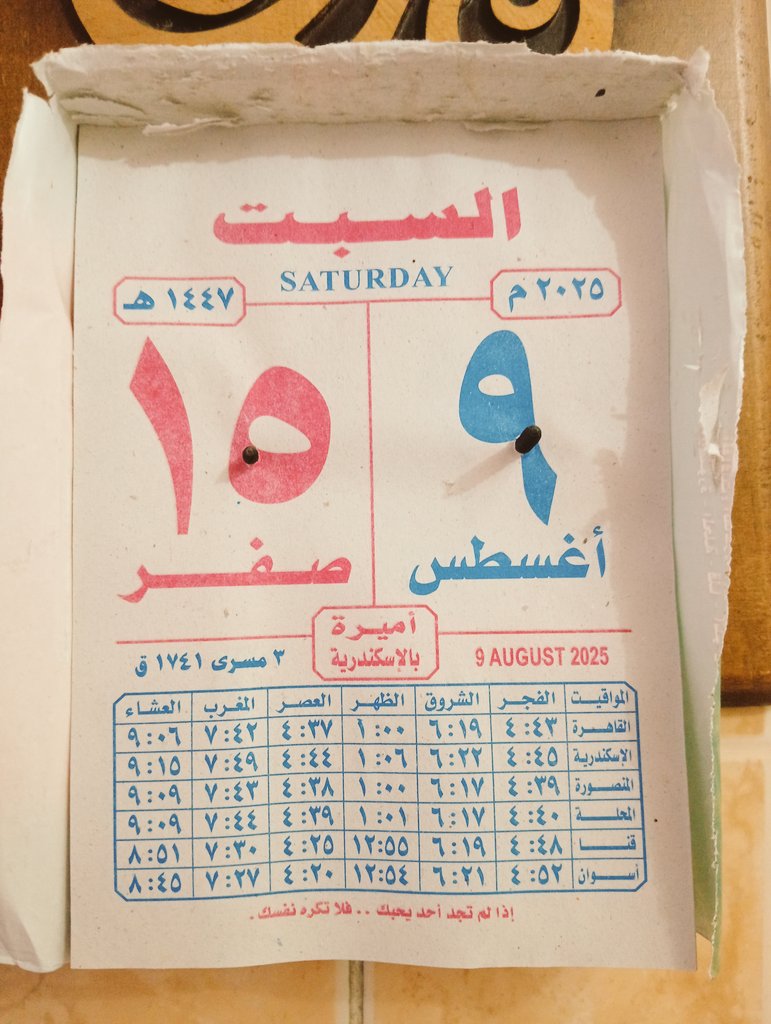 السبت
SATURDAY
٢٠٢٥ م
١٤٤٧ هـ
٩
١٥
أغسطس
صفر
أميرة
بالإسكندرية
9 AUGUST 2025
٣ مسرى ١٧٤١ ق
المواقيت الفجر الشروق الظهر العصر المغرب العشاء
القاهرة ٤:٤٣ ٦:١٩ ١:٠٠ ٤:٣٧ ٧:٤٢ ٩:٠٦
الإسكندرية ٤:٤٥ ٦:٢٢ ١:٠٦ ٤:٤٤ ٧:٤٩ ٩:١٥
المنصورة ٤:٣٩ ٦:١٧ ١:٠٠ ٤:٣٨ ٧:٤٣ ٩:٠٩
المحلة ٤:٤٠ ٦:١٧ ١:٠١ ٤:٣٩ ٧:٤٤ ٩:٠٩
قنا ٤:٤٨ ٦:١٩ ١٢:٥٥ ٤:٢٥ ٧:٣٠ ٨:٥١
أسوان ٤:٥٢ ٦:٢١ ١٢:٥٤ ٤:٢٠ ٧:٢٧ ٨:٤٥
إذا لم تجد أحد يحبك .. فلا تكره نفسك.